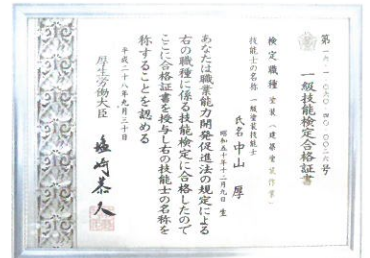 一級技能検定合格証書
検定職種 塗装(建築塗装作業)
技能士の名称 一級塗装技能士
氏名 中山 厚
昭和五十年十二月九日 生
あなたは職業能力開発促進法の規定による
右の職種に係る技能検定に合格したので
ここに合格証書を与し右の技能士の名称を
称することを認める
平成二十八年九月三十日
厚生労働大臣
塩崎恭久